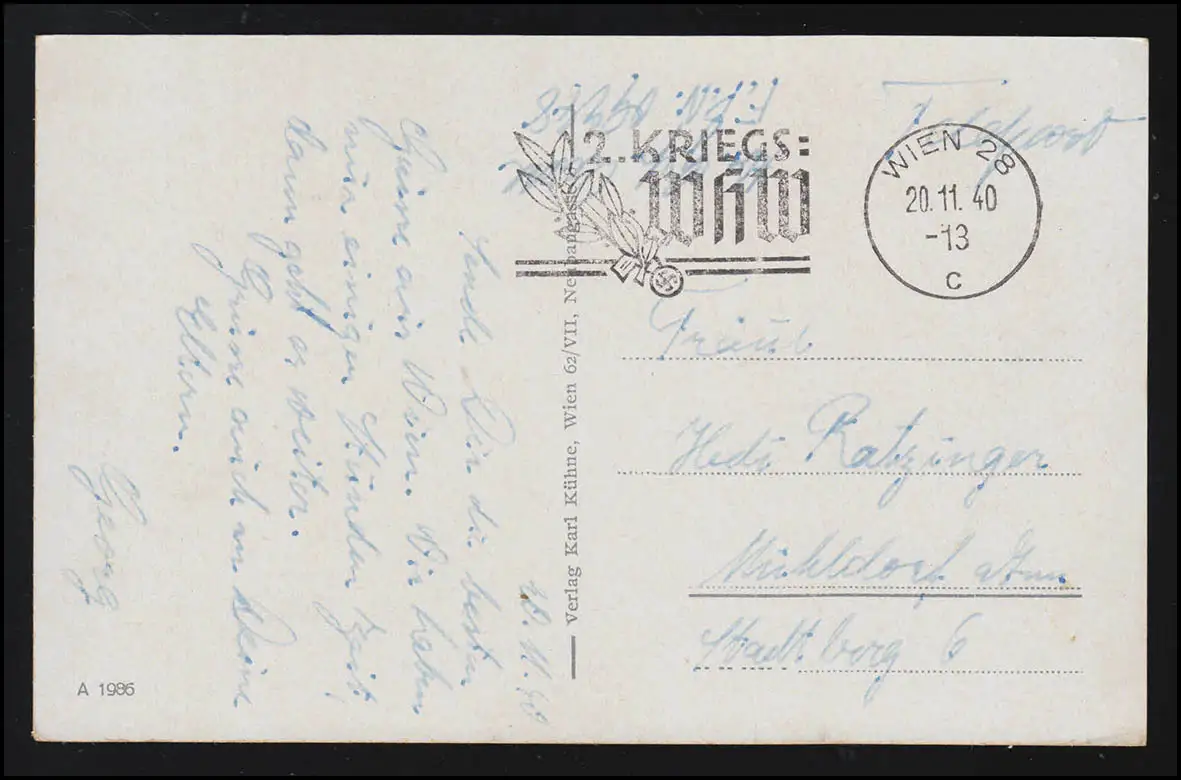 Feldpost
2. KRIEGS:
WHW
WIEN 28
20.11.40
-13
c
Fräul.
Hedi Ratzinger
Mühldorf a/Inn
Stadtberg 6
Verlag Karl Kühne, Wien 62/VII, Neubaugasse
20.11.40
Sende Dir die besten
Grüße aus Wien. Wir haben
hier einige Stunden Zeit,
dann geht es weiter.
Grüße auch an Deine
Eltern.
Georg
A 1986